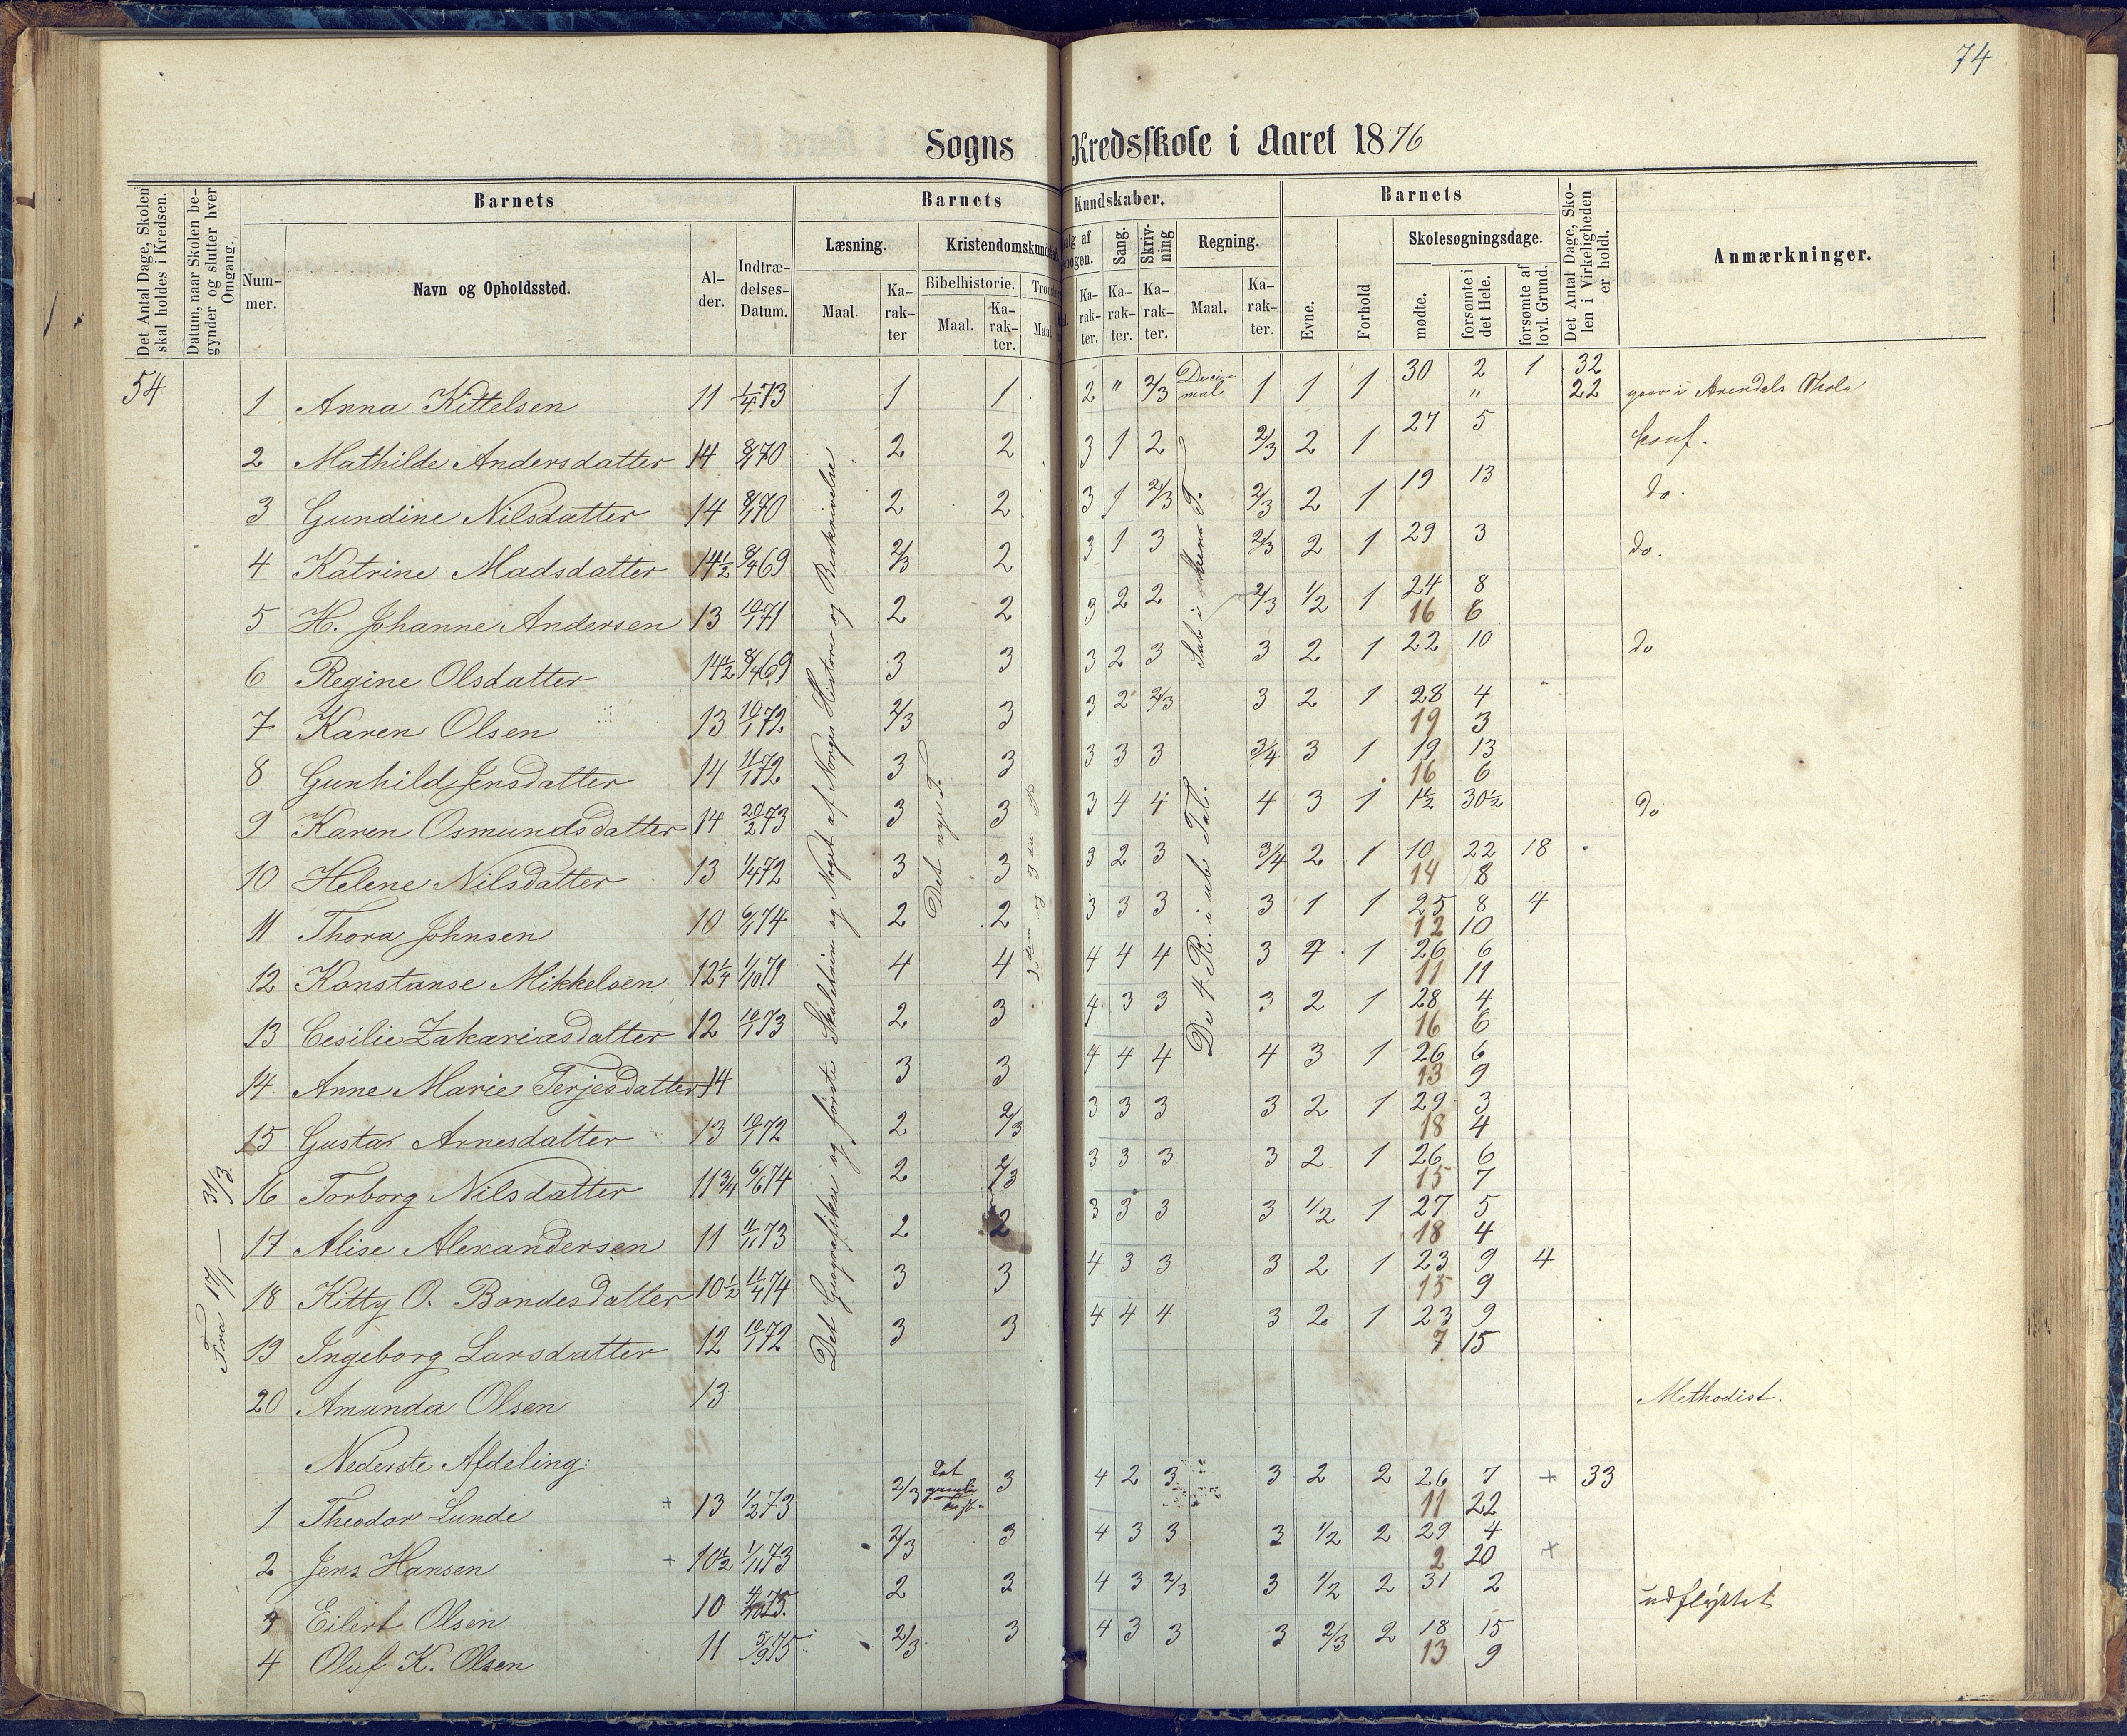 74
Sogns Kredsskole i Aaret 1876
Det Antal Dage, Skolen skal holdes i Kredsen.
Datum, naar Skolen begynder og slutter hver Omgang.
Barnets
Nummer.
Navn og Opholdssted.
Alder.
Indtrædelses-Datum.
Barnets Kundskaber.
Læsning.
Maal.
Karakter
Kristendomskundskab
Bibelhistorie.
Maal.
Karakter.
Maal
Karakter.
Sang.
Karakter.
Skrivning
Karakter.
Regning.
Maal.
Karakter.
Barnets
Evne.
Forhold
Skolesøgningsdage.
mødte.
forsømte i det Hele.
forsømte af lovl. Grund.
Det Antal Dage, Skolen i Virkeligheden er holdt.
Anmærkninger.
54
Fra 17/1 — 31/3.
Det Geografiske og første Skoletrin og Noget af Norges Historie og Beskrivelse
Det nye T.
De 4 R. i ub Tal.
1 Anna Kittelsen 11 1/4 73 1 1 2 " 2/3 Decimal 1 1 1 30 2 1 32
" 22 gaar i Arendals Skole
2 Mathilde Andersdatter 14 8/1 70 2 2 3 1 2 2/3 2 1 27 5 konf.
3 Gundine Nilsdatter 14 8/1 70 2 2 3 1 2/3 2/3 2 1 19 13 do.
4 Katrine Madsdatter 14 1/2 8/4 69 2/3 2 3 1 3 2/3 2 1 29 3 do.
5 H. Johanne Andersen 13 10/1 71 2 2 3 2 2 2/3 1/2 1 24 8
16 6
6 Regine Olsdatter 14 1/2 8/4 69 3 3 3 2 3 3 2 1 22 10 do
7 Karen Olsen 13 10/1 72 2/3 3 3 2 2/3 3 2 1 28 4
19 3
8 Gunhild Jensdatter 14 11/1 72 3 3 3 3 3 3/4 3 1 19 13
16 6
9 Karen Osmundsdatter 14 20/2 73 3 3 3 4 4 4 3 1 1 1/2 30 1/2 do
10 Helene Nilsdatter 13 1/4 72 3 3 3 2 3 3/4 2 1 10 22 18
14 8
11 Thora Johnsen 10 6/1 74 2 2 3 3 3 3 1 1 25 8 4
12 10
12 Konstanse Mikkelsen 12 1/4 1/10 71 4 4 4 4 4 3 4 1 26 6
11 11
13 Cesilie Zakariasdatter 12 10/1 73 2 3 4 3 3 3 2 1 28 4
16 6
14 Anne Marie Terjesdatter 14 3 3 4 4 4 4 3 1 26 6
13 9
15 Gustav Arnesdatter 13 10/1 72 2 2/3 3 3 3 3 2 1 29 3
18 4
16 Torborg Nilsdatter 11 3/4 6/6 74 2 2/3 3 3 3 3 2 1 26 6
15 7
17 Alise Alexandersen 11 11/11 73 2 2 3 3 3 3 1/2 1 27 5
18 4
18 Kitty O. Bondesdatter 10 1/2 11/4 74 3 3 4 3 3 3 2 1 23 9 4
15 9
19 Ingeborg Larsdatter 12 10/1 72 3 3 4 4 4 3 2 1 23 9
7 15
20 Amanda Olsen 13 Methodist.
Nederste Afdeling:
1 Theodor Lunde + 13 1/2 73 2/3 Det gamle Test. 3 4 2 3 3 2 2 26 7 + 33
11 22
2 Jens Hansen + 10 1/2 1/11 73 2/3 3 4 3 3 3 1/2 2 29 4 +
2 20
Eilert Olsen 10 75. 2 3 4 3 2/3 3 1/2 2 31 2 udflyttet
4 Oluf K. Olsen 11 5/9 75 2/3 3 4 3 3 3 2/3 2 18 15
13 9